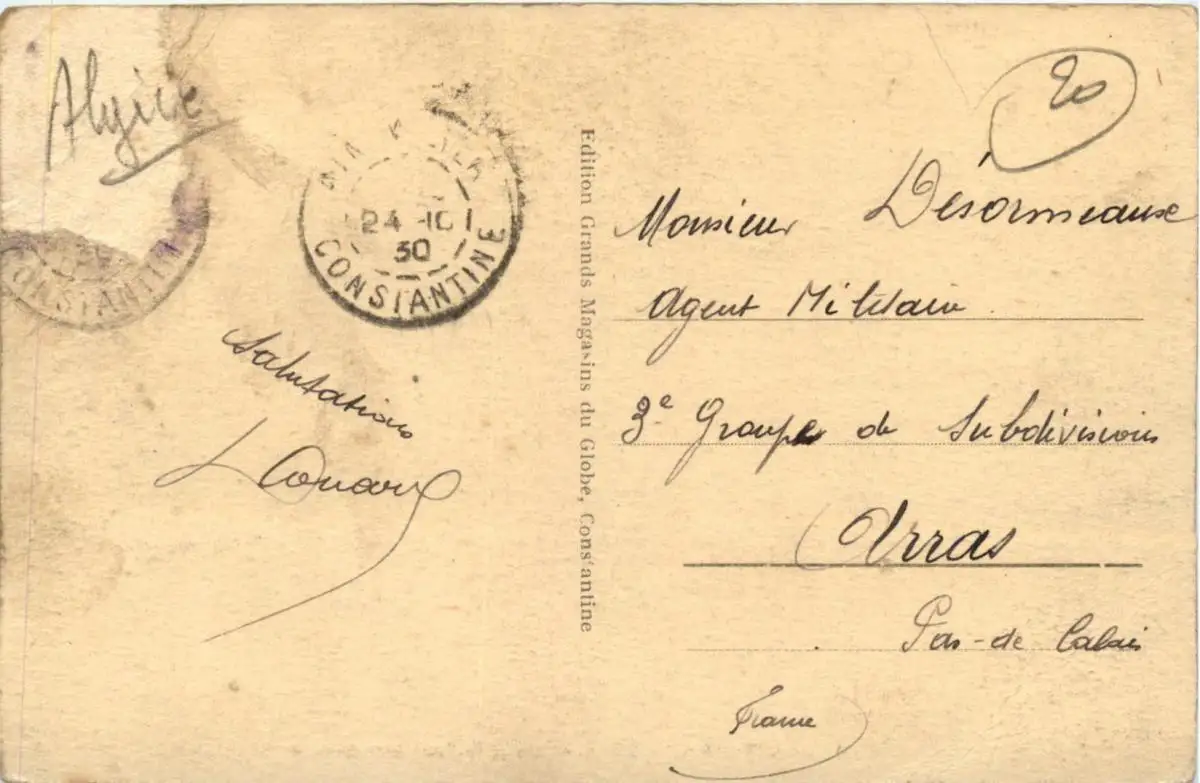 Algérie
24-10
30
CONSTANTINE
CONSTANTINE
Salutations
Edition Grands Magasins du Globe, Constantine
20
Monsieur Désormeaux
Agent Militaire
3e Groupe de Subdivisions
Arras
Pas-de Calais
France